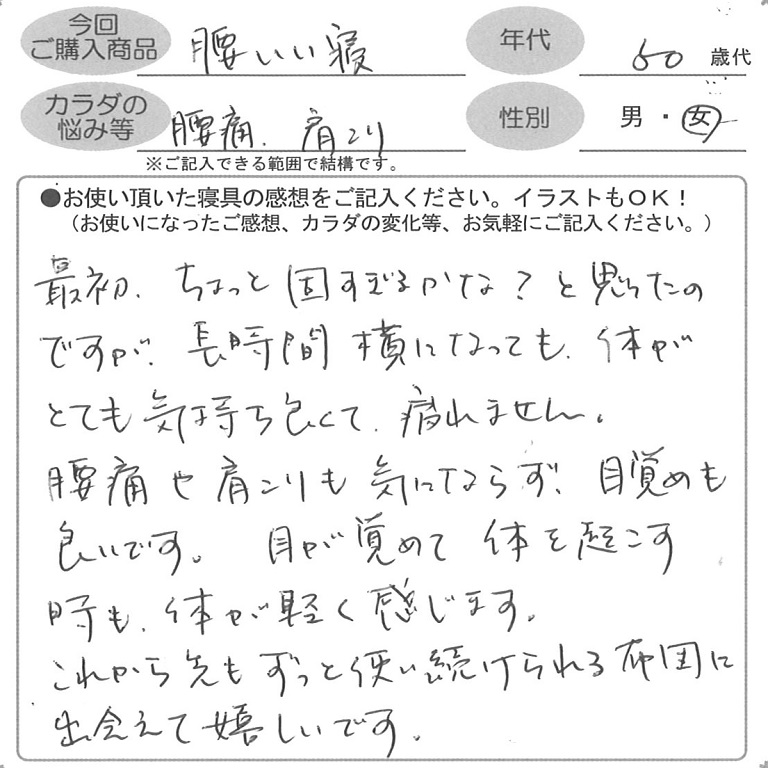 今回
ご購入商品
腰いい寝
年代
50 歳代
カラダの
悩み等
腰痛、肩こり
性別
男・女
※ご記入できる範囲で結構です。
●お使い頂いた寝具の感想をご記入ください。イラストもOK！
（お使いになったご感想、カラダの変化等、お気軽にご記入ください。）
最初、ちょっと固すぎるかな？と思ったの
ですが、長時間横になっても、体が
とても気持ち良くて、疲れません。
腰痛や肩こりも気にならず、目覚めも
良いです。目が覚めて体を起こす
時も、体が軽く感じます。
これから先もずっと使い続けられる布団に
出会えて嬉しいです。